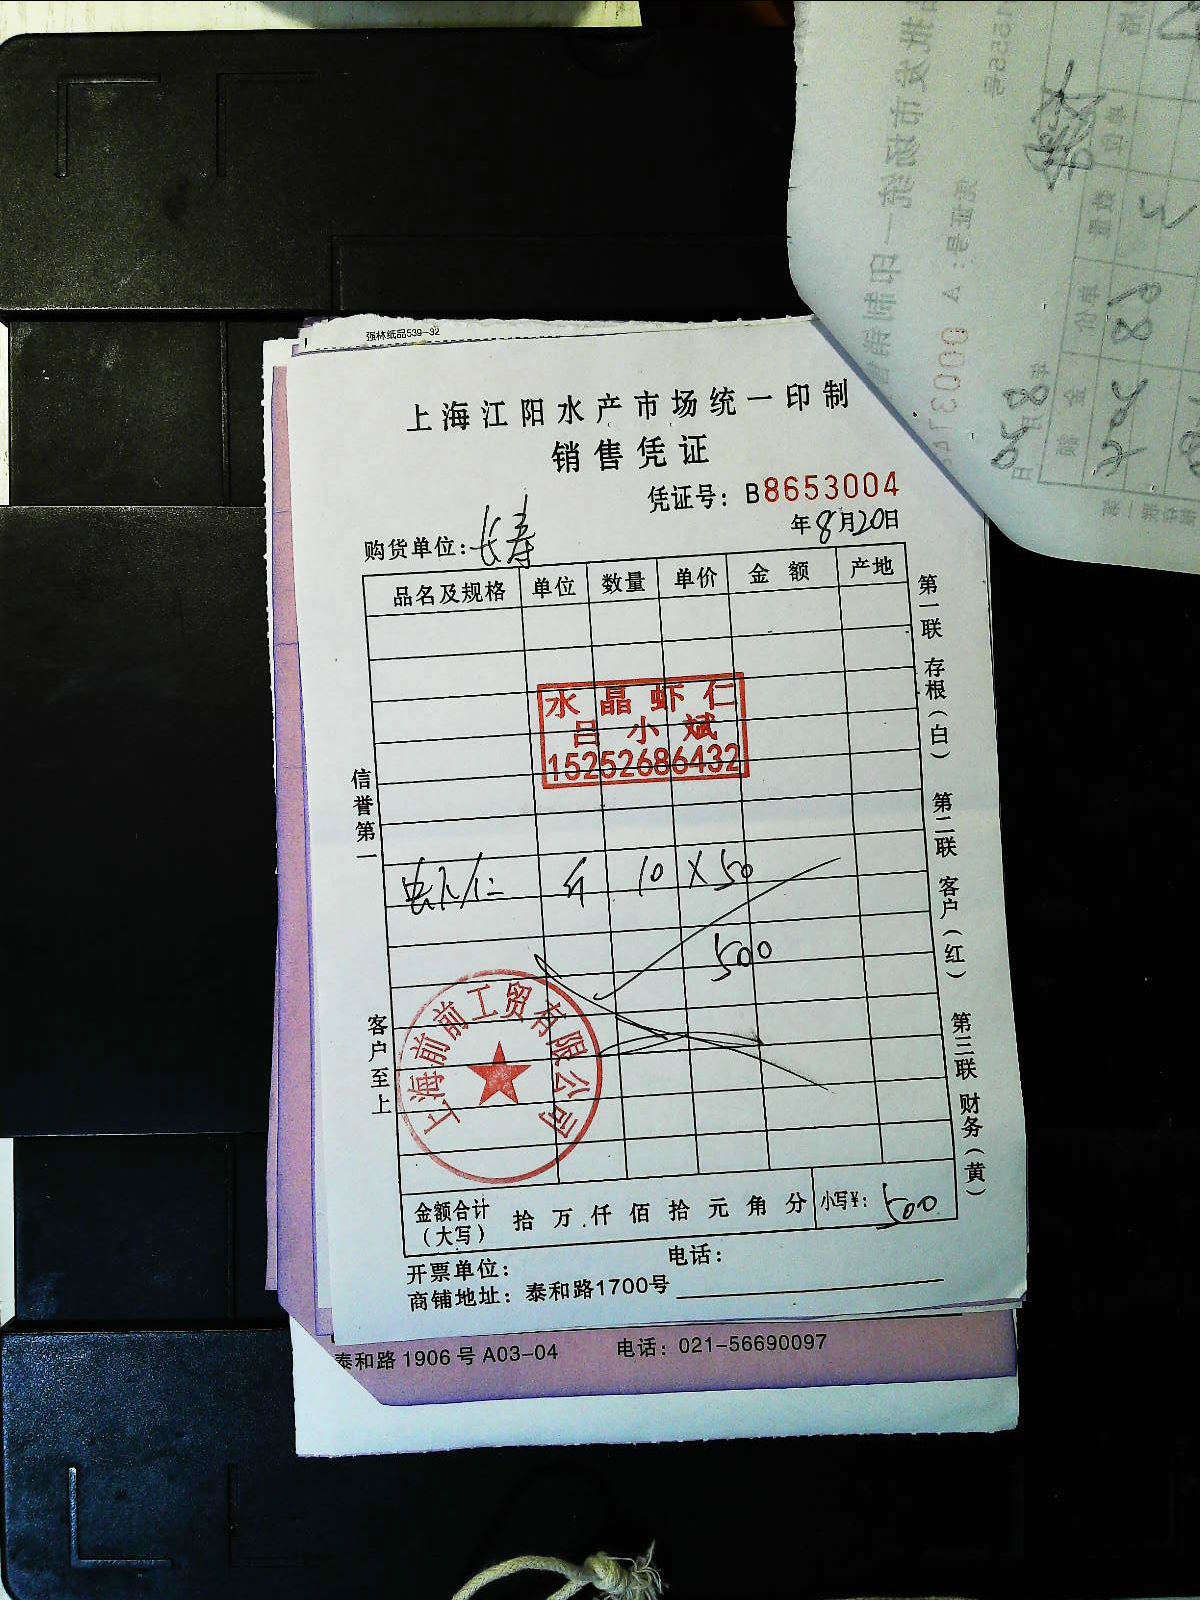 强林纸品539-32
上海江阳水产市场统一印制
销售凭证
凭证号: B8653004
购货单位: 长寿
年8月20日
品名及规格 单位 数量 单价 金额 产地
水晶虾仁
吕小斌
15252686432
虾仁 斤 10 X 50
500
上海前前工贸有限公司
金额合计(大写) 拾 万 仟 佰 拾 元 角 分 小写¥: 500
开票单位: 电话:
商铺地址: 泰和路1700号
信誉第一
客户至上
第一联 存根(白)
第二联 客户(红)
第三联 财务(黄)
泰和路 1906 号 A03-04 电话: 021-56690097